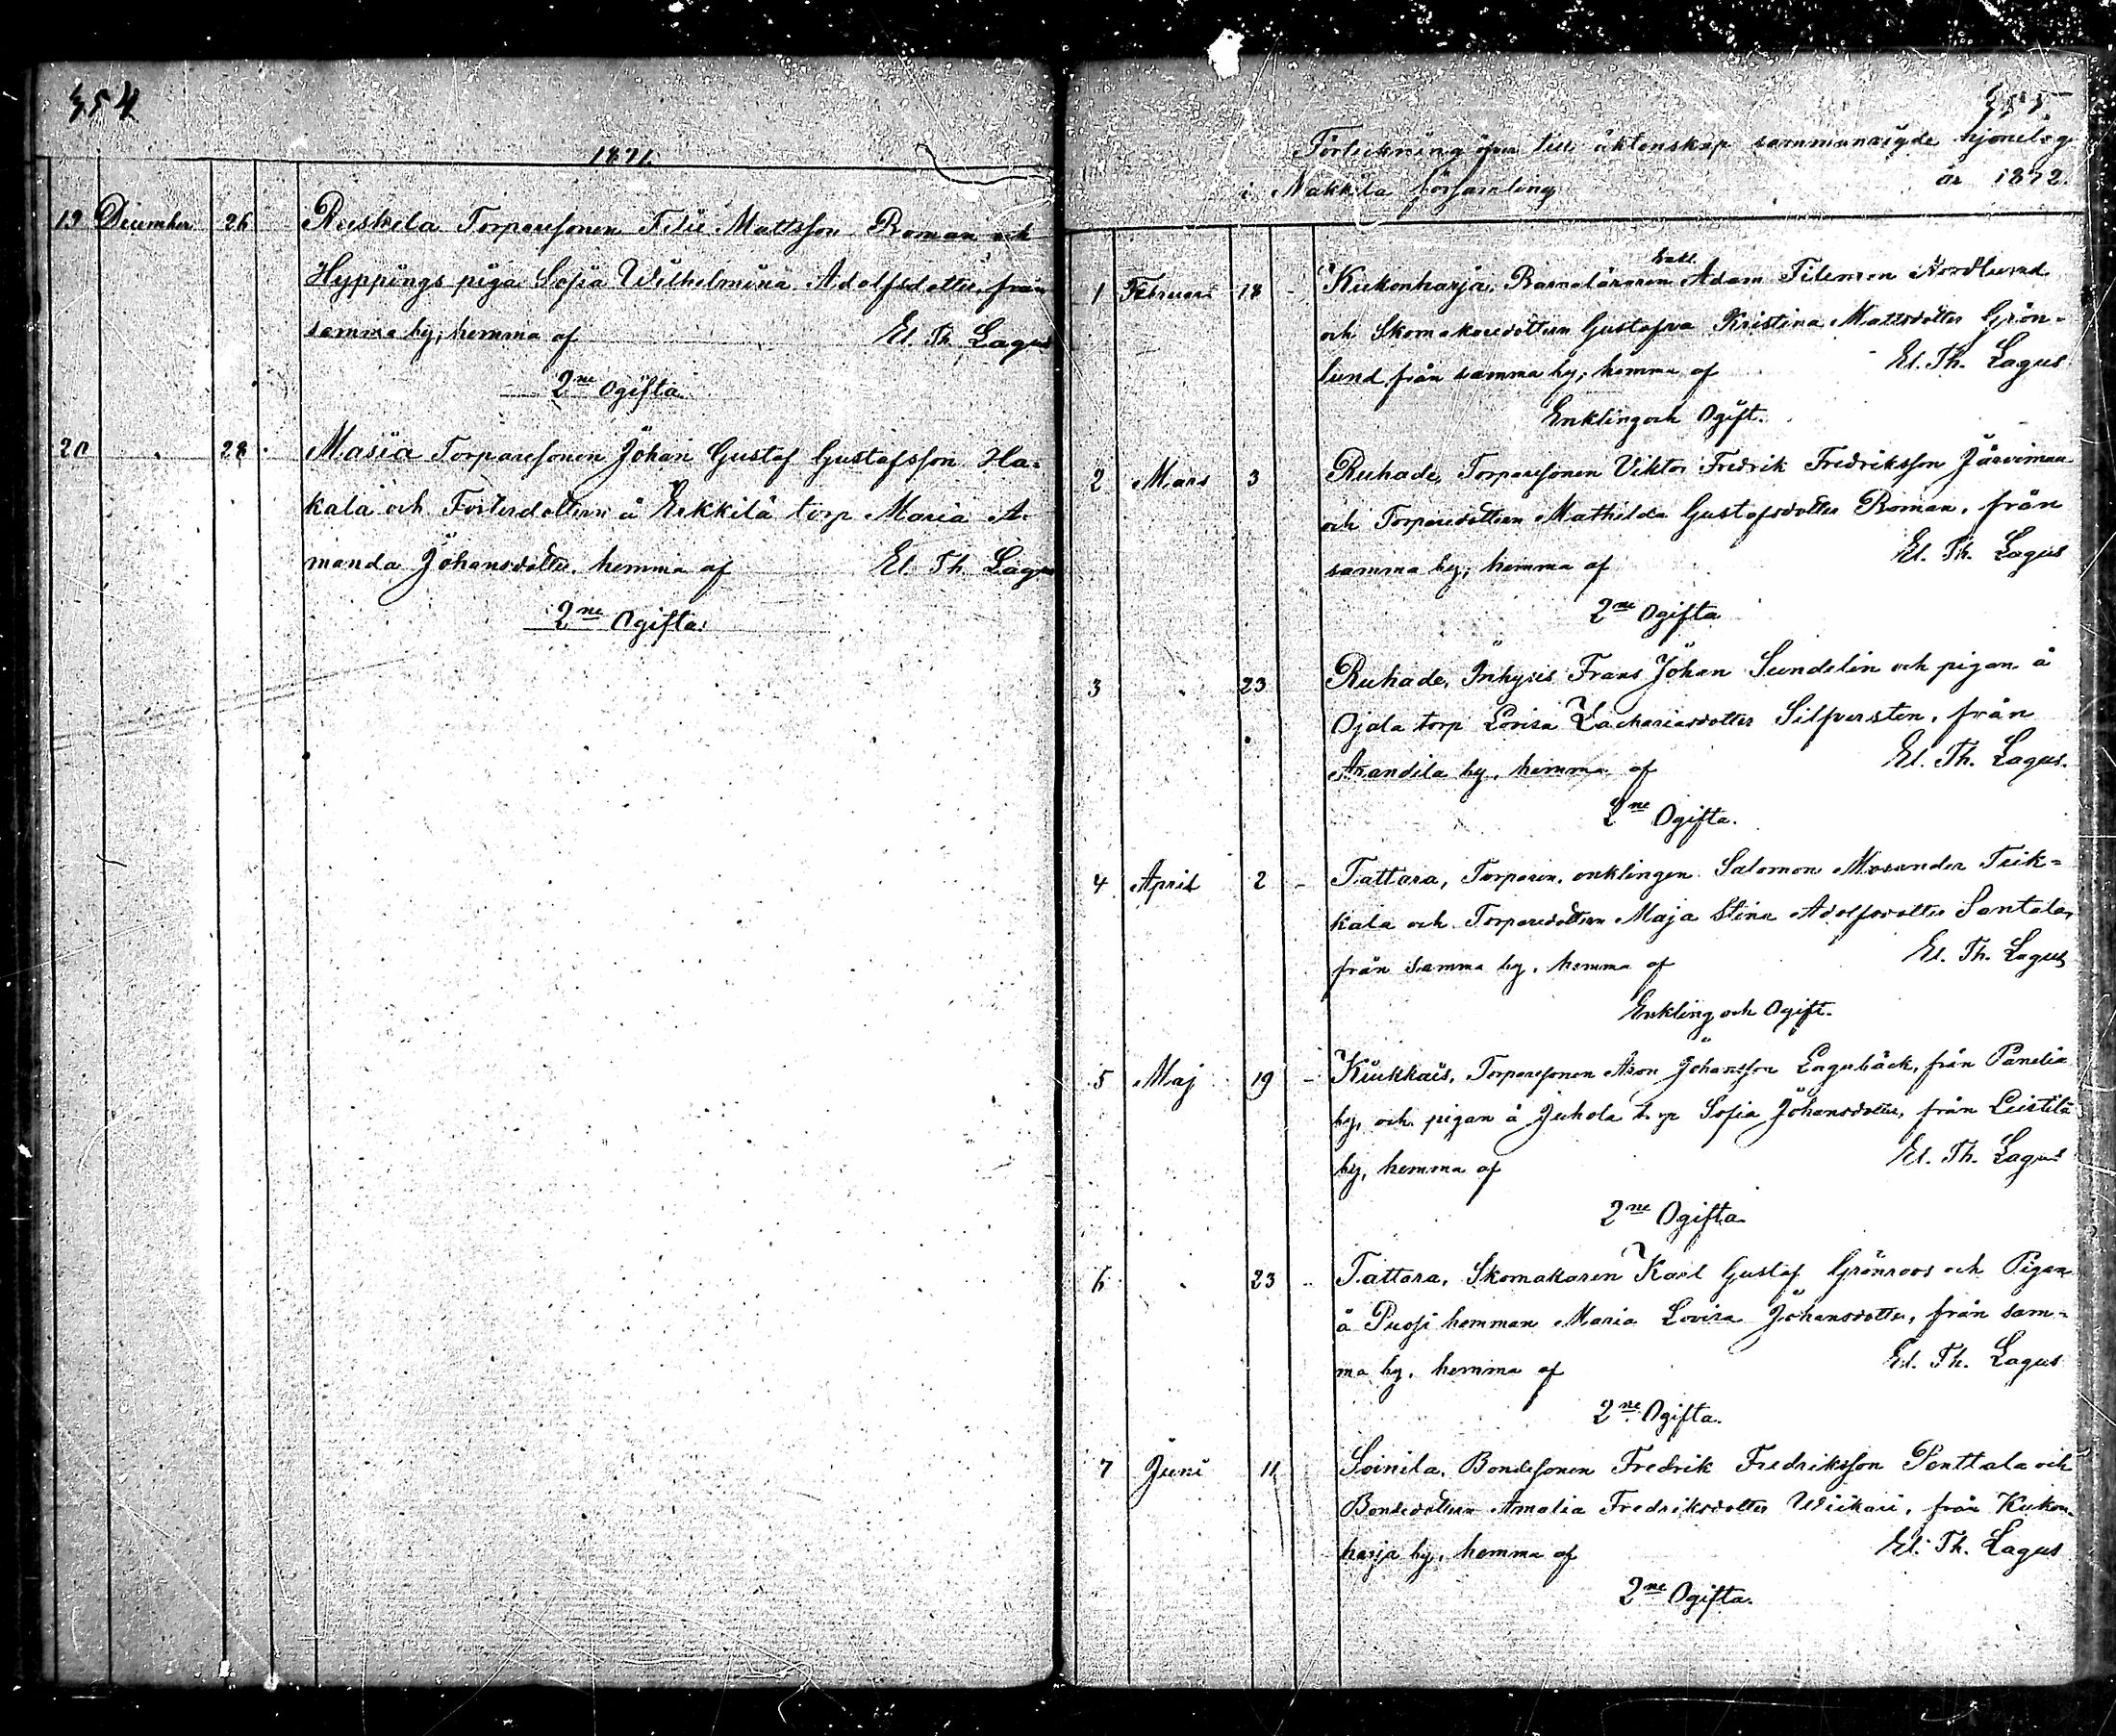 354
1871.
19 December 26 Ruskila Torparesonen Felix Mattsson Roman och
Hyppings piga Sofia Wilhelmina Adolfsdotter, från
samma by, hemma af El. Th. Lagus
2ne Ogifta
20 " 28 Masia Torparesonen Johan Gustaf Gustafsson Ha-
kala och Fosterdottern å Erkkilä torp Maria A-
manda Johansdotter, hemma af El. Th. Lagus
2ne Ogifta.
355
Förteckning öfver till äktenskap sammanvigde hjonelag
i Nakkila församling år 1872.
Enkl.
1 Februari 18 Kukonharja, Barnaläraren Adam Filemon Nordlund
och Skomakaredottern Gustafva Kristina Mattsdotter Grön-
lund från samma by, hemma af El. Th. Lagus
Enkling och Ogift.
2 Mars 3 Ruhade, Torparesonen Viktor Fredrik Fredriksson Järvimaa
och Torparedottern Mathilda Gustafsdotter Roman, från
samma by, hemma af El. Th. Lagus
2ne Ogifta
3 " 23 Ruhade, Inhyses Frans Johan Sundelin och pigan å
Ojala torp Lovisa Zachariasdotter Silfversten, från
Arandila by, hemma af El. Th. Lagus.
2ne Ogifta.
4 April 2 Tattara, Torparen, enklingen Salomon Mosander Teik-
kala och Torparedottern Maja Stina Adolfsdotter Santala,
från samma by, hemma af El. Th. Lagus
Enkling och Ogift.
5 Maj 19 Kiukkais, Torparesonen Johansson Lagubäck, från Panelia
by, och pigan å Juhola torp Sofia Johansdotter, från Leistilä
by, hemma af El. Th. Lagus
2ne Ogifta
6 " 23 Tattara, Skomakaren Karl Gustaf Grönroos och Pigan
å Puosi hemman Maria Lovisa Johansdotter, från sam-
ma by, hemma af El. Th. Lagus
2ne Ogifta.
7 Juni 11 Soinila, Bondesonen Fredrik Fredriksson Penttala och
Bondedottern Amalia Fredriksdotter Wiikari, från Kukon-
harja by, hemma af El. Th. Lagus
2ne Ogifta.